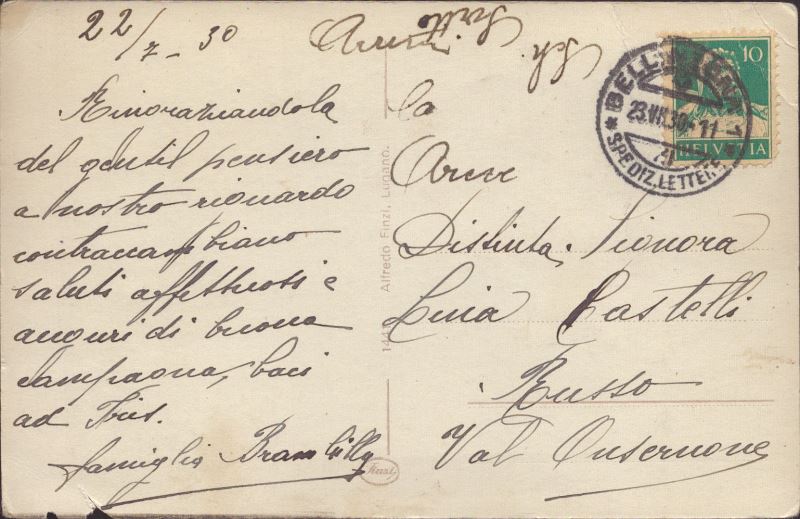 22/7-30
Ringraziandola
del gentil pensiero
a nostro riguardo
contraccambiano
saluti affettuosi e
auguri di buona
campagna, baci
ad Iris.
famiglia Brambilla
Alfredo Finzi, Lugano.
Finzi
BELLINZONA 1
23.VII.30-11
SPEDIZ. LETTERE
10
HELVETIA
la
Distinta Signora
Livia Castelli
Russo
Val Onsernone